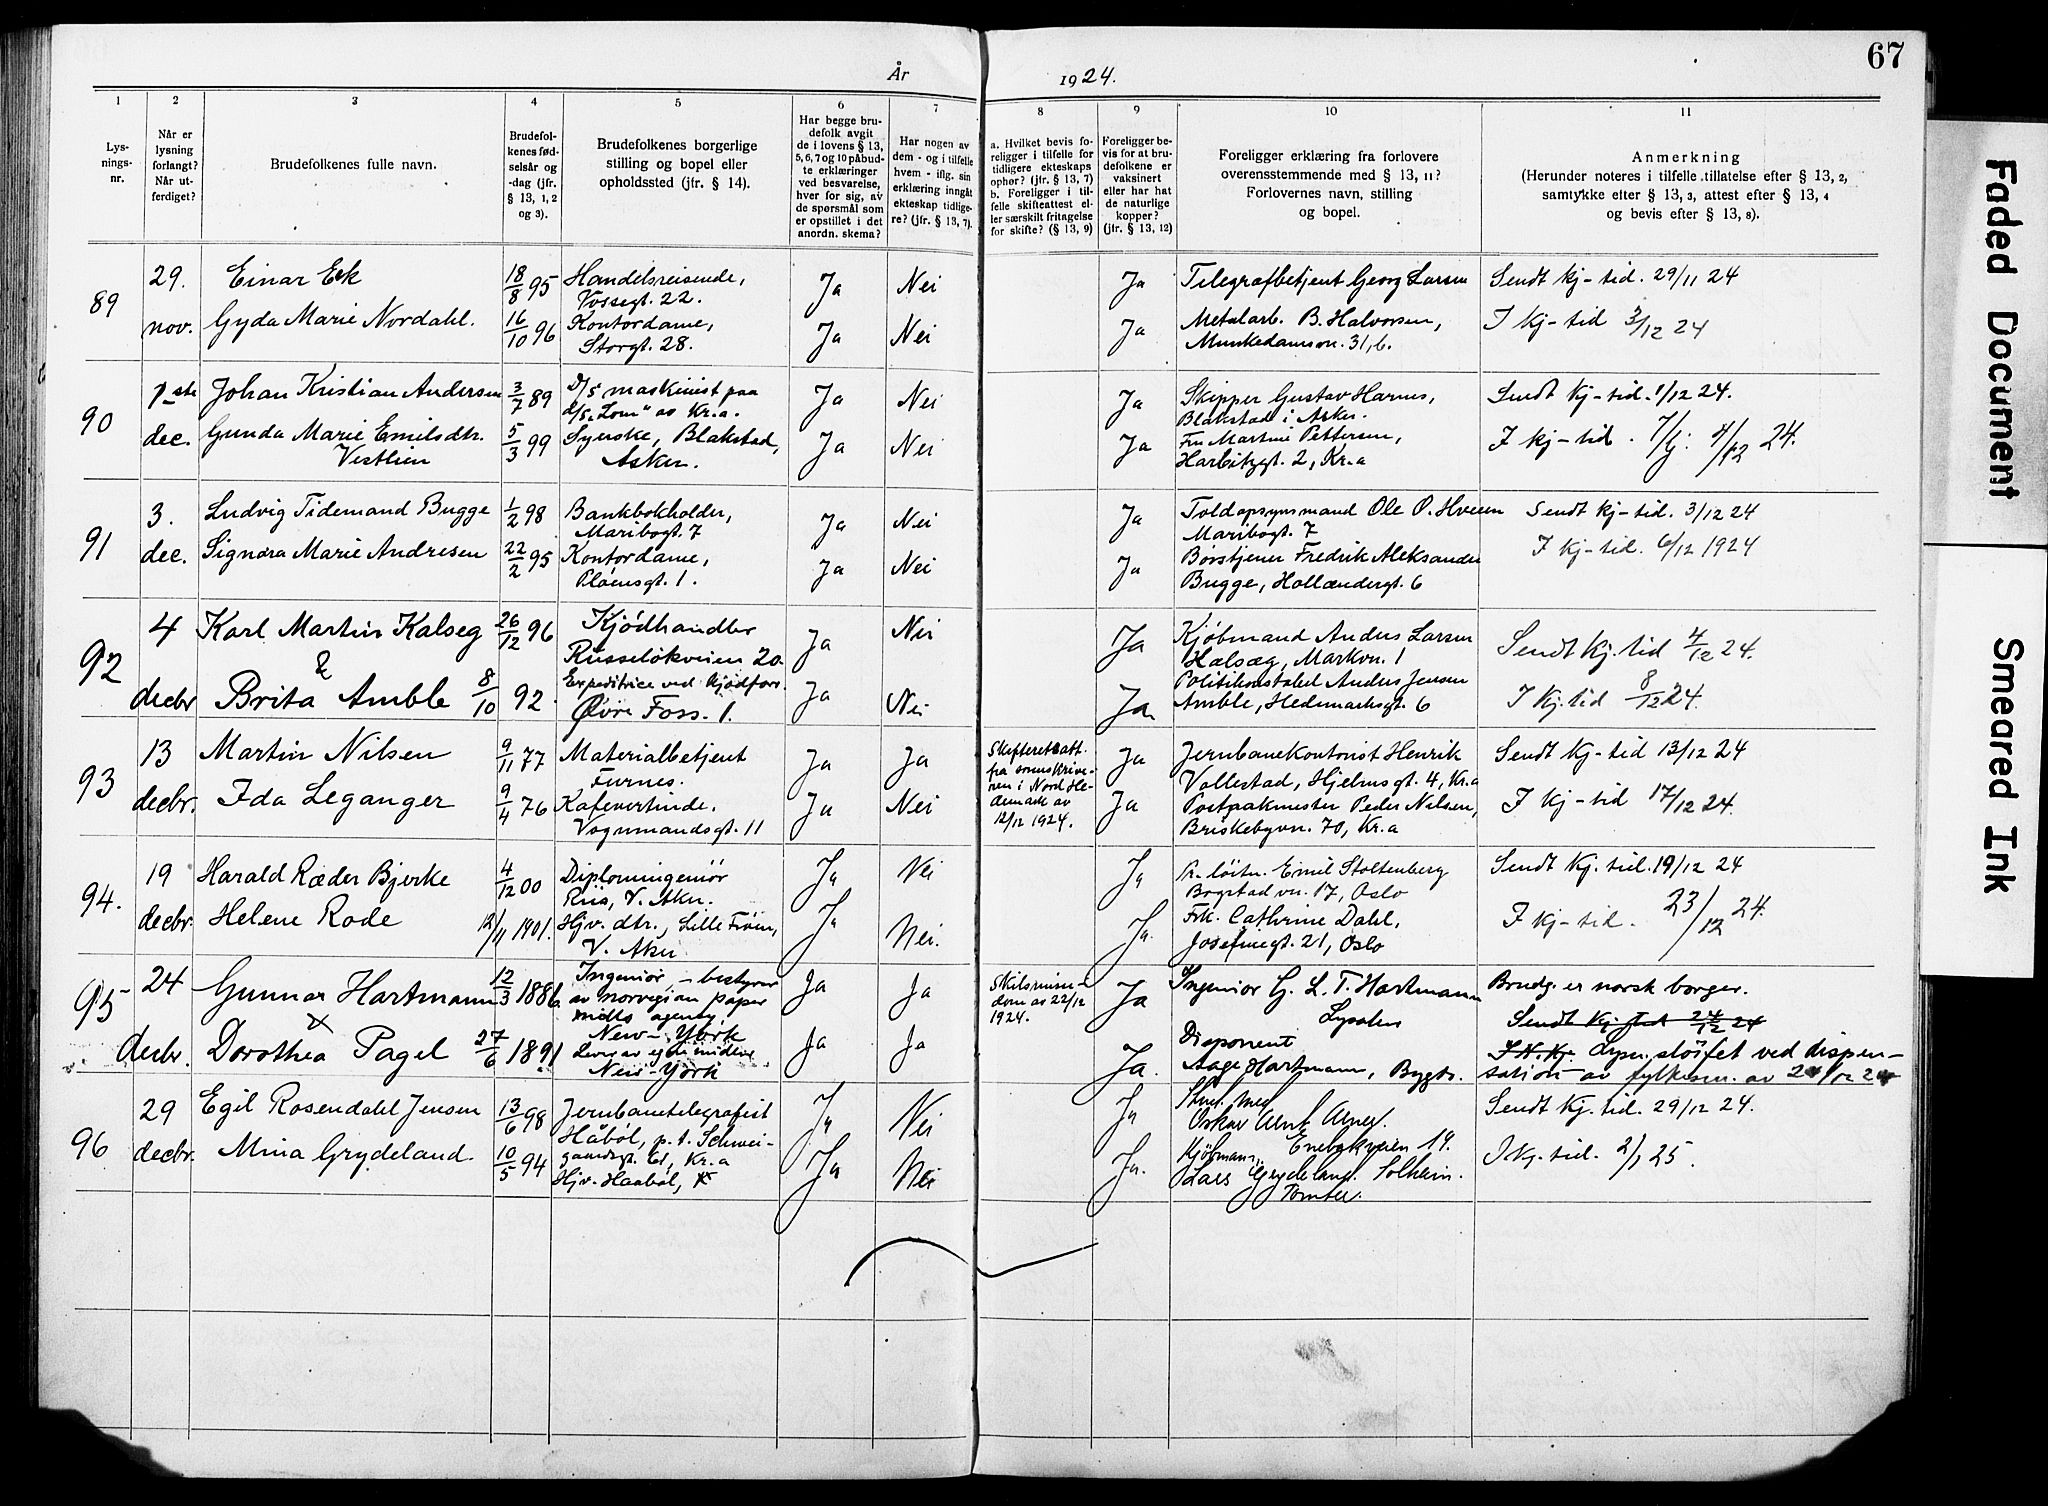 67
År 1924.
1 2 3 4 5 6 7 8 9 10 11
Lys-
nings-
nr.
Når er
lysning
forlangt?
Når ut-
ferdiget?
Brudefolkenes fulle navn.
Brudefol-
kenes fød-
selsår og
-dag (jfr.
§ 13, 1, 2
og 3).
Brudefolkenes borgerlige
stilling og bopel eller
opholdssted (jfr. § 14).
Har begge bru-
defolk avgit
de i lovens § 13,
5, 6, 7 og 10 påbud-
te erklæringer
ved besvarelse,
hver for sig, av
de spørsmål som
er opstillet i det
anordn. skema?
Har nogen av
dem - og i tilfelle
hvem - iflg. sin
erklæring inngåt
ekteskap tidlige-
re? (jfr. § 13, 7).
a. Hvilket bevis fo-
religger i tilfelle for
tidligere ekteskaps
ophør? (jfr. § 13, 7)
b. Foreligger i til-
felle skifteattest el-
ler særskilt fritagelse
for skifte? (§ 13, 9)
Foreligger be-
vis for at bru-
defolkene er
vaksinert
eller har hat
de naturlige
kopper?
(jfr. § 13, 12)
Foreligger erklæring fra forlovere
overensstemmende med § 13, 11?
Forlovernes navn, stilling
og bopel.
Anmerkning
(Herunder noteres i tilfelle tillatelse efter § 13, 2,
samtykke efter § 13, 3, attest efter § 13, 4
og bevis efter § 13, 8).
89
29.
nov.
Einar Eek
Gyda Marie Nordahl.
18/8 95
16/10 96
Handelsreisende,
Vossegt. 22.
Kontordame,
Storgt. 28.
Ja
Ja
Nei
Nei
Ja
Ja
Telegrafbetjent Georg Larsen
Metalarb. B. Halvorsen,
Munkedamsvn. 31, b.
Sendt kj-tid. 29/11 24
I kj-tid 3/12 24
90
1ste
dec.
Johan Kristian Andersen
Gunda Marie Emilsdtr.
Vestlien
3/7 89
5/3 99
D/S maskinist paa
d/s "Lom" av Kr.a.
Syerske, Blakstad,
Asker.
Ja
Ja
Nei
Nei
Ja
Ja
Skipper Gustav Harnes,
Blakstad i Asker.
Fru Martine Pettersen,
Harbitzgt. 2, Kr.a
Sendt Kj-tid. 1/12 24.
I kj-tid. 4/12 24.
91
3.
dec.
Ludvig Tidemand Bugge
Signora Marie Andresen
1/2 98
22/2 95
Bankbokholder,
Maribogt. 7
Kontordame,
Pløensgt. 1.
Ja
Ja
Nei
Nei
Ja
Ja
Toldopsynsmand Ole O. Hveem
Maribogt. 7
Børstjener Fredrik Aleksander
Bugge, Hollændergt. 6
Sendt kj-tid. 3/12 24
I kj-tid. 6/12 1924
92
4
decbr
Karl Martin Kalseg
&
Brita Amble
26/12 96
8/10 92.
Kjødhandler
Russeløkveien 20.
Expeditrice ved Kjødforr.
Øvre Foss. 1.
Ja
Ja
Nei
Nei
Ja
Ja.
Kjøbmand Anders Larsen
Halsæg, Markvn. 1
Politikonstabel Anders Jensen
Amble, Hedemarksgt. 6
Sendt Kj. tid 4/12 24.
I Kj. tid 8/12 24.
93
13
decbr.
Martin Nilsen
Ida Leganger
9/11 77
9/4 76
Materialbetjent
Furnes.
Kafevertinde,
Vognmandsgt. 11
Ja
Ja
Ja
Nei
Skifteretsatt.
fra sorenskrive-
ren i Nord He-
demark av
12/12 1924.
Ja
Ja
Jernbanekontorist Henrik
Vallestad, Hjelmsgt. 4, Kr.a
Postpakmester Peder Nilsen,
Briskebyvn. 70, Kr.a
Sendt Kj-tid 13/12 24
I kj-tid 17/12 24.
94.
19
decbr.
Harald Ræder Bjerke
Helene Rode
4/12 00
12/11 1901.
Diplomingeniør
Riis, V. Aker.
Hjv. dtr., Lille Frøen,
V. Aker
Ja
Ja
Nei
Nei.
Ja
Ja.
Pr. løitn. Emil Stoltenberg
Bogstadvn. 17, Oslo
Frk. Cathrine Dahl,
Josefinegt. 21, Oslo
Sendt Kj. tid. 19/12 24
I kj-tid. 23/12 24.
95
24
decbr.
Gunnar Hartmann
x
Dorothea Pagel
12/3 1886
27/6 1891
Ingeniør, - bestyrer
av norvegian paper
mills agency,
New-York
Lever av egne midler
New-York
Ja
Ja
Ja
Ja
Skilsmisse-
dom av 22/12
1924.
Ja
Ja.
Ingeniør G. L. T. Hartmann
Lysaker
Disponent
Aage Hartmann, Bygdø.
Brudg. er norsk borger.
Sendt Kj. tid 24/12 24
I N. Kj. Lysn. sløifet ved dispen-
sation av fylkesm. av 24/12 24
96
29
decbr.
Egil Rosendahl Jensen
Mina Grydeland.
13/6 98
10/5 94
Jernbanetelegrafist
Håbøl, p. t. Schwei-
gaardsgt. 61, Kr.a
Hjv. Haabøl,
Ja
Ja
Nei
Nei
Ja
Ja.
Stud. med
Oskar Arnt Arnes.
Enebakveien 19.
Kjøbmann
Lars Grydeland. Solheim.
Tomter.
Sendt Kj. tid. 29/12 24.
I Kj. tid. 2/1 25.
Faded Document
Smeared Ink